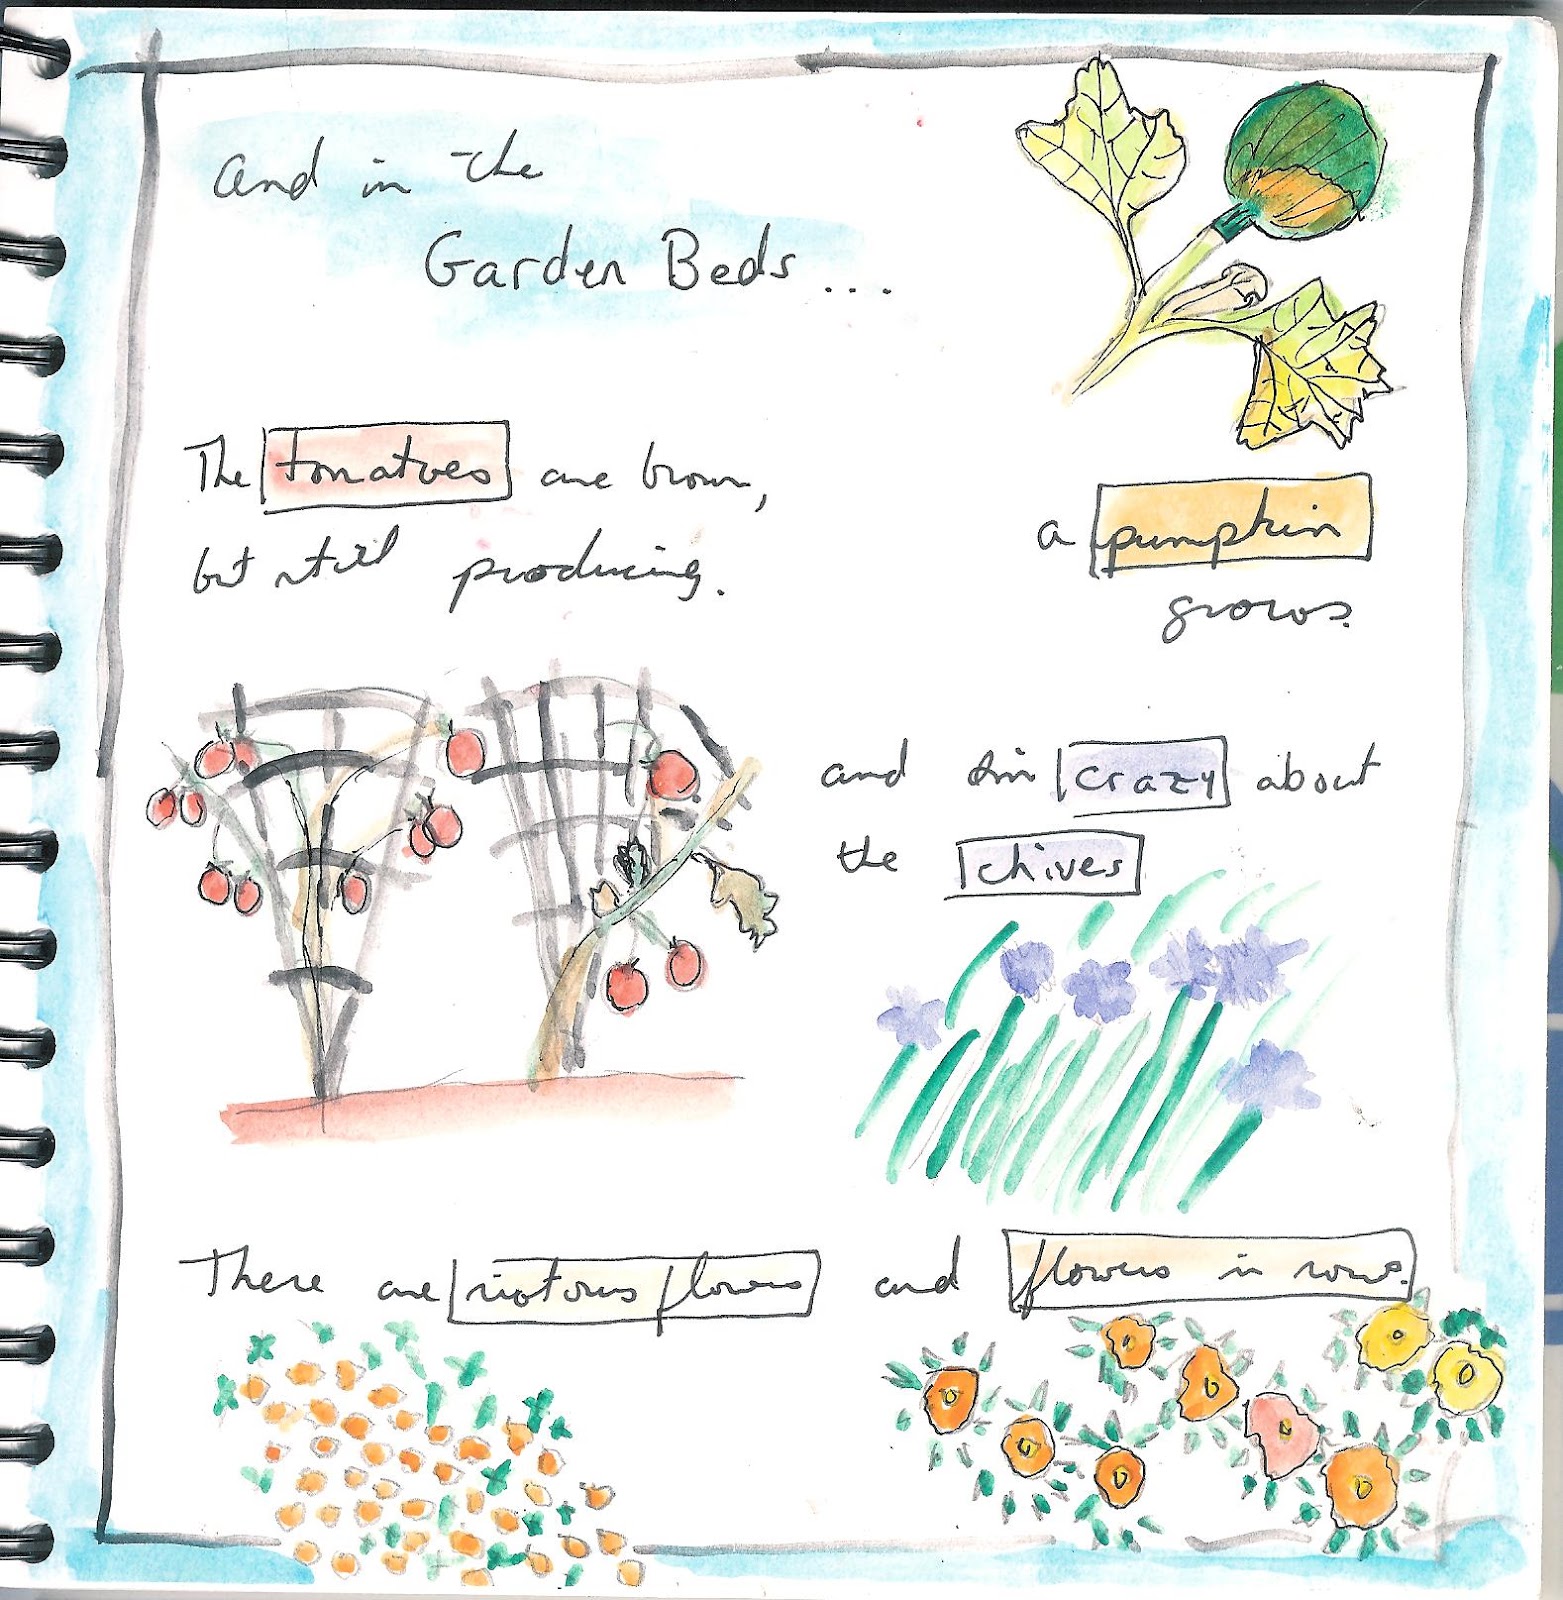 and in the
Garden Beds...
The tomatoes are brown,
but still producing.
a pumpkin
grows.
and I'm crazy about
the chives
There are riotous flowers and flowers in rows.